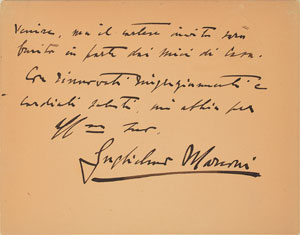 venire, ma il cortese invito sarà
gradito in parte dai miei di Casa.
Con rinnovati Ringraziamenti e
cordiali saluti, mi abbia per
Suo
Guglielmo Marconi